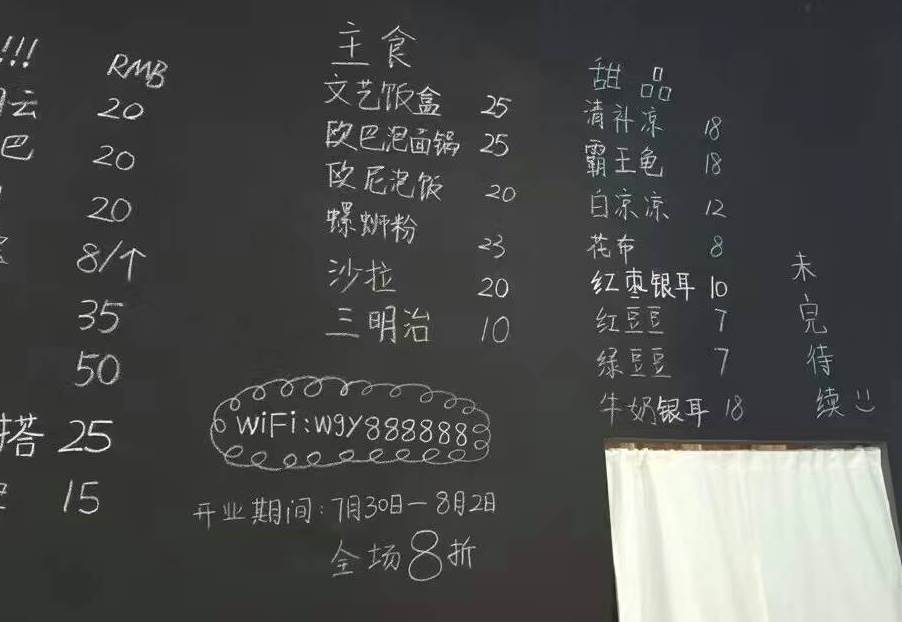 !!!
RMB
云 20
巴 20
20
8/个
35
50
搭 25
15
主食
文艺饭盒 25
欧巴泡面锅 25
欧尼泡饭 20
螺蛳粉 23
沙拉 20
三明治 10
WiFi:wgy888888
开业期间:7月30日—8月2日
全场8折
甜品
清补凉 18
霸王龟 18
白凉凉 12
花布 8
红枣银耳 10
红豆豆 7
绿豆豆 7
牛奶银耳 18
未完待续